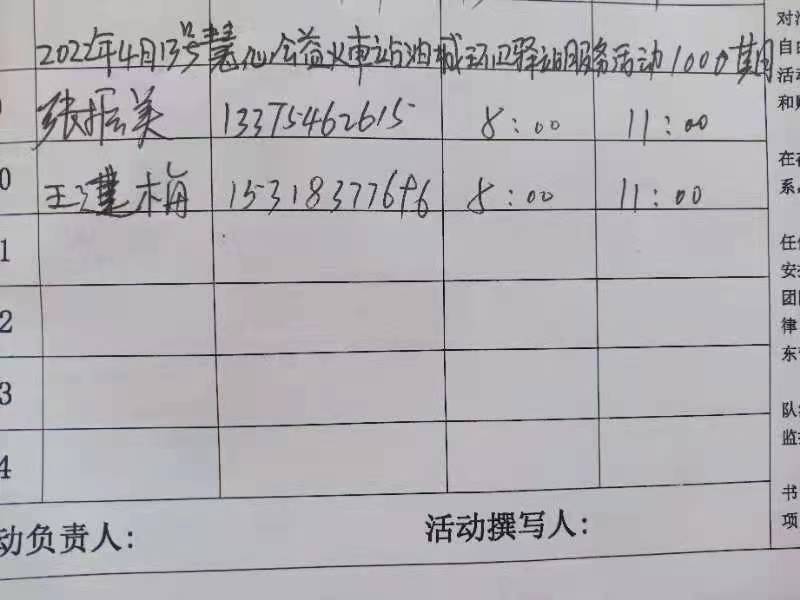 2022年4月13号慧心公益火車站油城环卫驿站服务活动1000其月
张振美 13375462615 8:00 11:00
0 王建梅 8:00 11:00
1
2
3
4
动负责人: 活动撰写人:
对
自由
活动
和
在
系
任
安
团
律
东
队
监
书
项